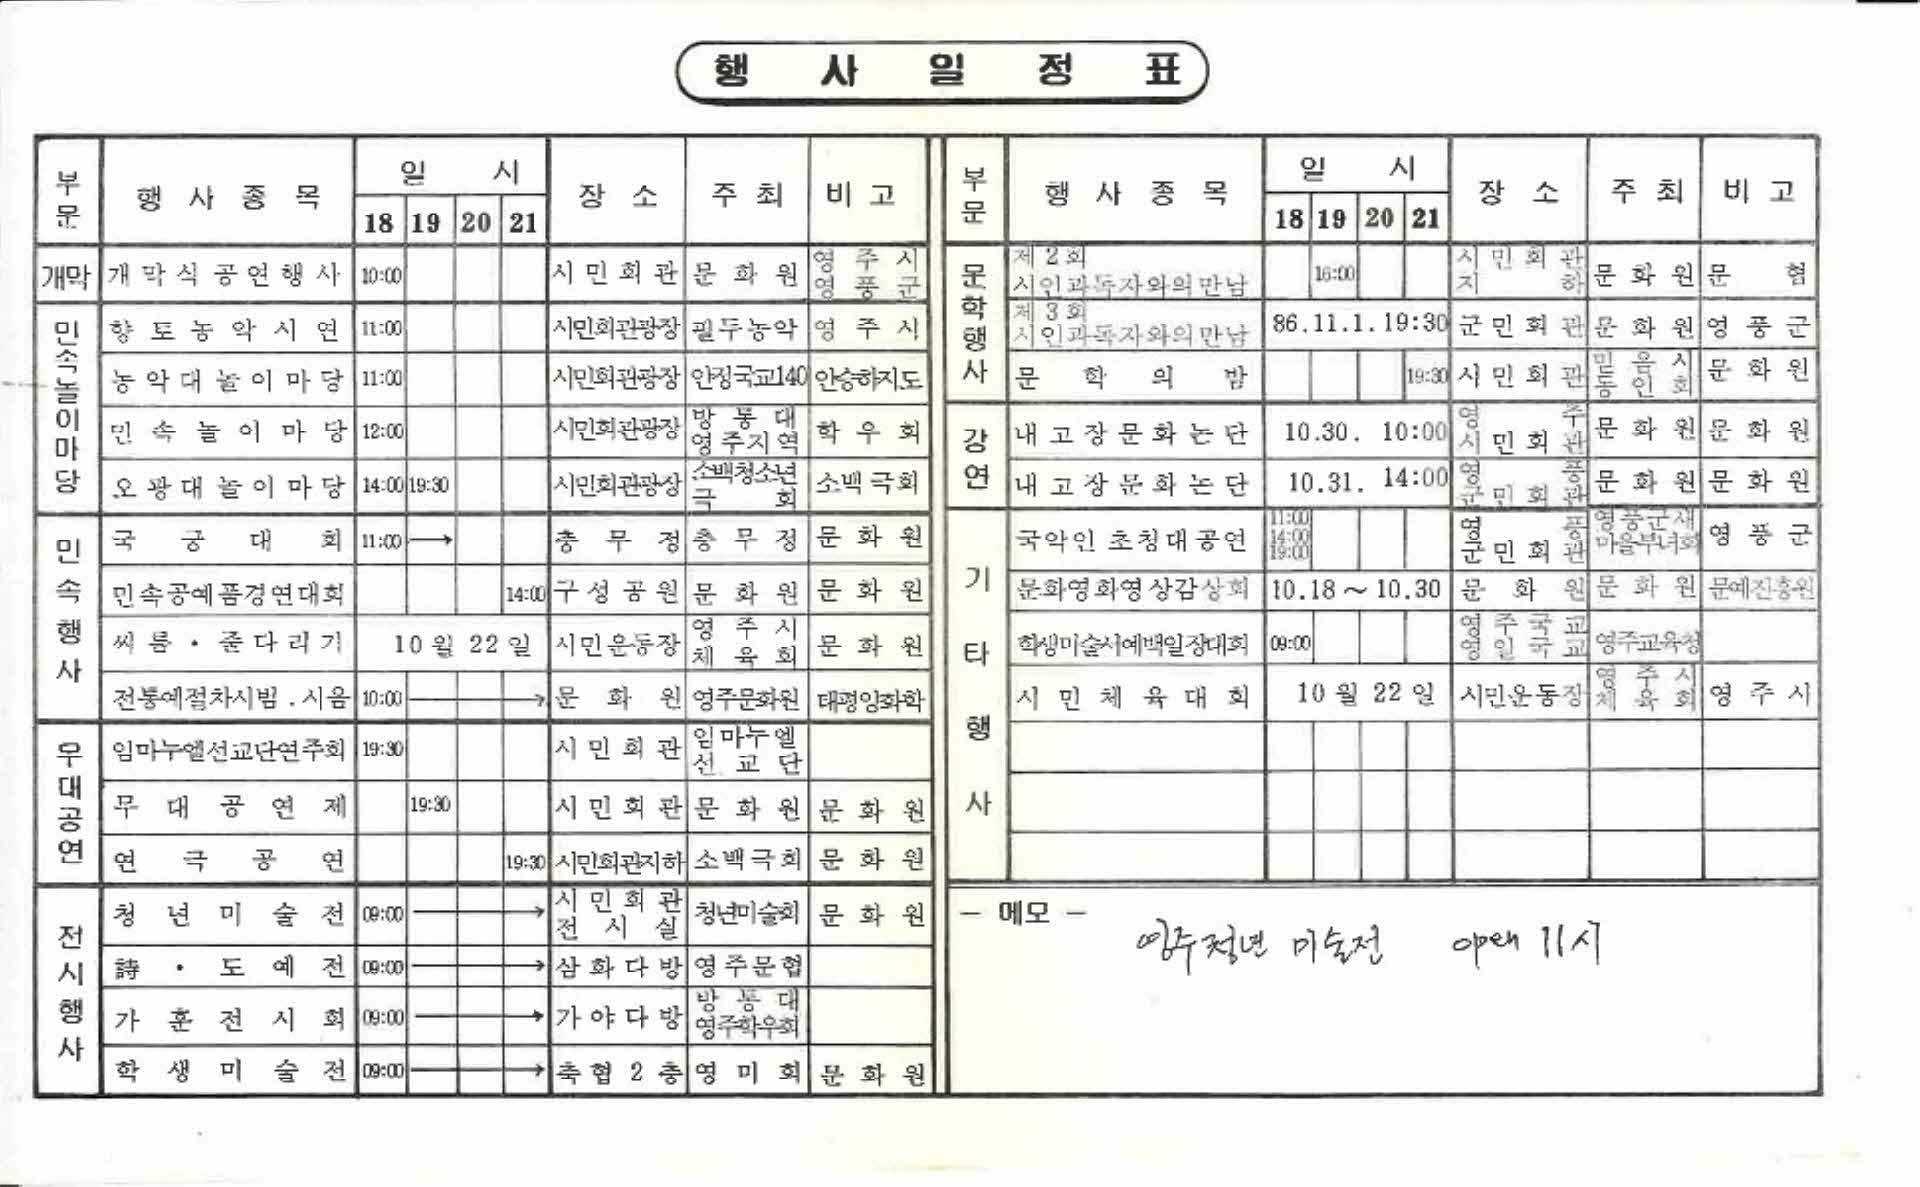 행사일정표
부문 행사종목 일시 장소 주최 비고
18 19 20 21
개막 개막식공연행사 10:00 시민회관 문화원 영주시 영풍군
민속놀이마당
향토농악시연 11:00 시민회관광장 필두농악 영주시
농악대놀이마당 11:00 시민회관광장 안정국교140 안승하지도
민속놀이마당 12:00 시민회관광장 방통대 영주지역 학우회
오광대놀이마당 14:00 19:30 시민회관광장 소백청소년 극회 소백극회
민속행사
국궁대회 11:00 → 충무정 충무정 문화원
민속공예품경연대회 14:00 구성공원 문화원 문화원
씨름·줄다리기 10월 22일 시민운동장 영주시 체육회 문화원
전통예절차시범.시음 10:00 → 문화원 영주문화원 태평양화학
무대공연
임마누엘선교단연주회 19:30 시민회관 임마누엘 선교단
무대공연제 19:30 시민회관 문화원 문화원
연극공연 19:30 시민회관지하 소백극회 문화원
전시행사
청년미술전 09:00 → 시민회관 전시실 청년미술회 문화원
詩·도예전 09:00 → 삼화다방 영주문협
가훈전시회 09:00 → 가야다방 방통대 영주학우회
학생미술전 09:00 → 축협2층 영미회 문화원
부문 행사종목 일시 장소 주최 비고
18 19 20 21
문학행사
제2회 시인과독자와의만남 16:00 시민회관 지하 문화원 문협
제3회 시인과독자와의만남 86.11.1.19:30 군민회관 문화원 영풍군
문학의밤 19:30 시민회관 믿음시 동인회 문화원
강연
내고장문화논단 10.30. 10:00 영주 시민회관 문화원 문화원
내고장문화논단 10.31. 14:00 영풍 군민회관 문화원 문화원
기타행사
국악인초청대공연 11:00 14:00 19:00 영풍 군민회관 영풍군새 마을부녀회 영풍군
문화영화영상감상회 10.18～10.30 문화원 문화원 문예진흥원
학생미술서예백일장대회 09:00 영주국교 영일국교 영주교육청
시민체육대회 10월 22일 시민운동장 영주시 체육회 영주시
— 메모 —
영주청년 미술전 open 11시